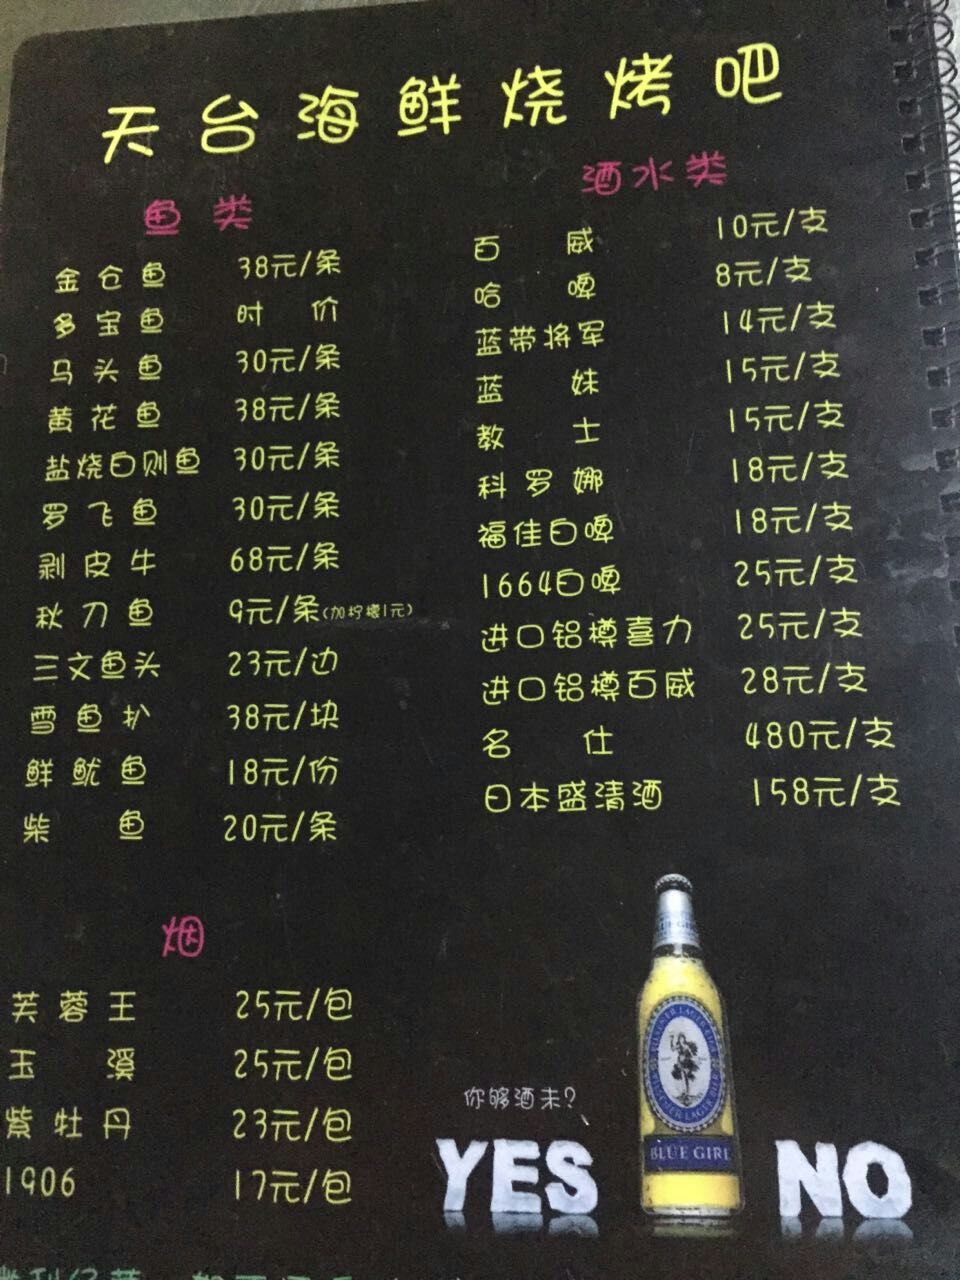 天台海鲜烧烤吧
鱼类
金仓鱼 38元/条
多宝鱼 时价
马头鱼 30元/条
黄花鱼 38元/条
盐烧白则鱼 30元/条
罗飞鱼 30元/条
剥皮牛 68元/条
秋刀鱼 9元/条(加柠檬1元)
三文鱼头 23元/边
雪鱼扒 38元/块
鲜鱿鱼 18元/份
柴鱼 20元/条
酒水类
百威 10元/支
哈啤 8元/支
蓝带将军 14元/支
蓝妹 15元/支
教士 15元/支
科罗娜 18元/支
福佳白啤 18元/支
1664白啤 25元/支
进口铝樽喜力 25元/支
进口铝樽百威 28元/支
名仕 480元/支
日本盛清酒 158元/支
烟
芙蓉王 25元/包
玉溪 25元/包
紫牡丹 23元/包
1906 17元/包
你够酒未?
YES NO
BLUE GIRL